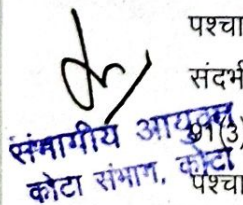 पश्चा
संदर्भ
संभागीय आयुक्त 91(3)
कोटा संभाग, कोटा
पश्चा